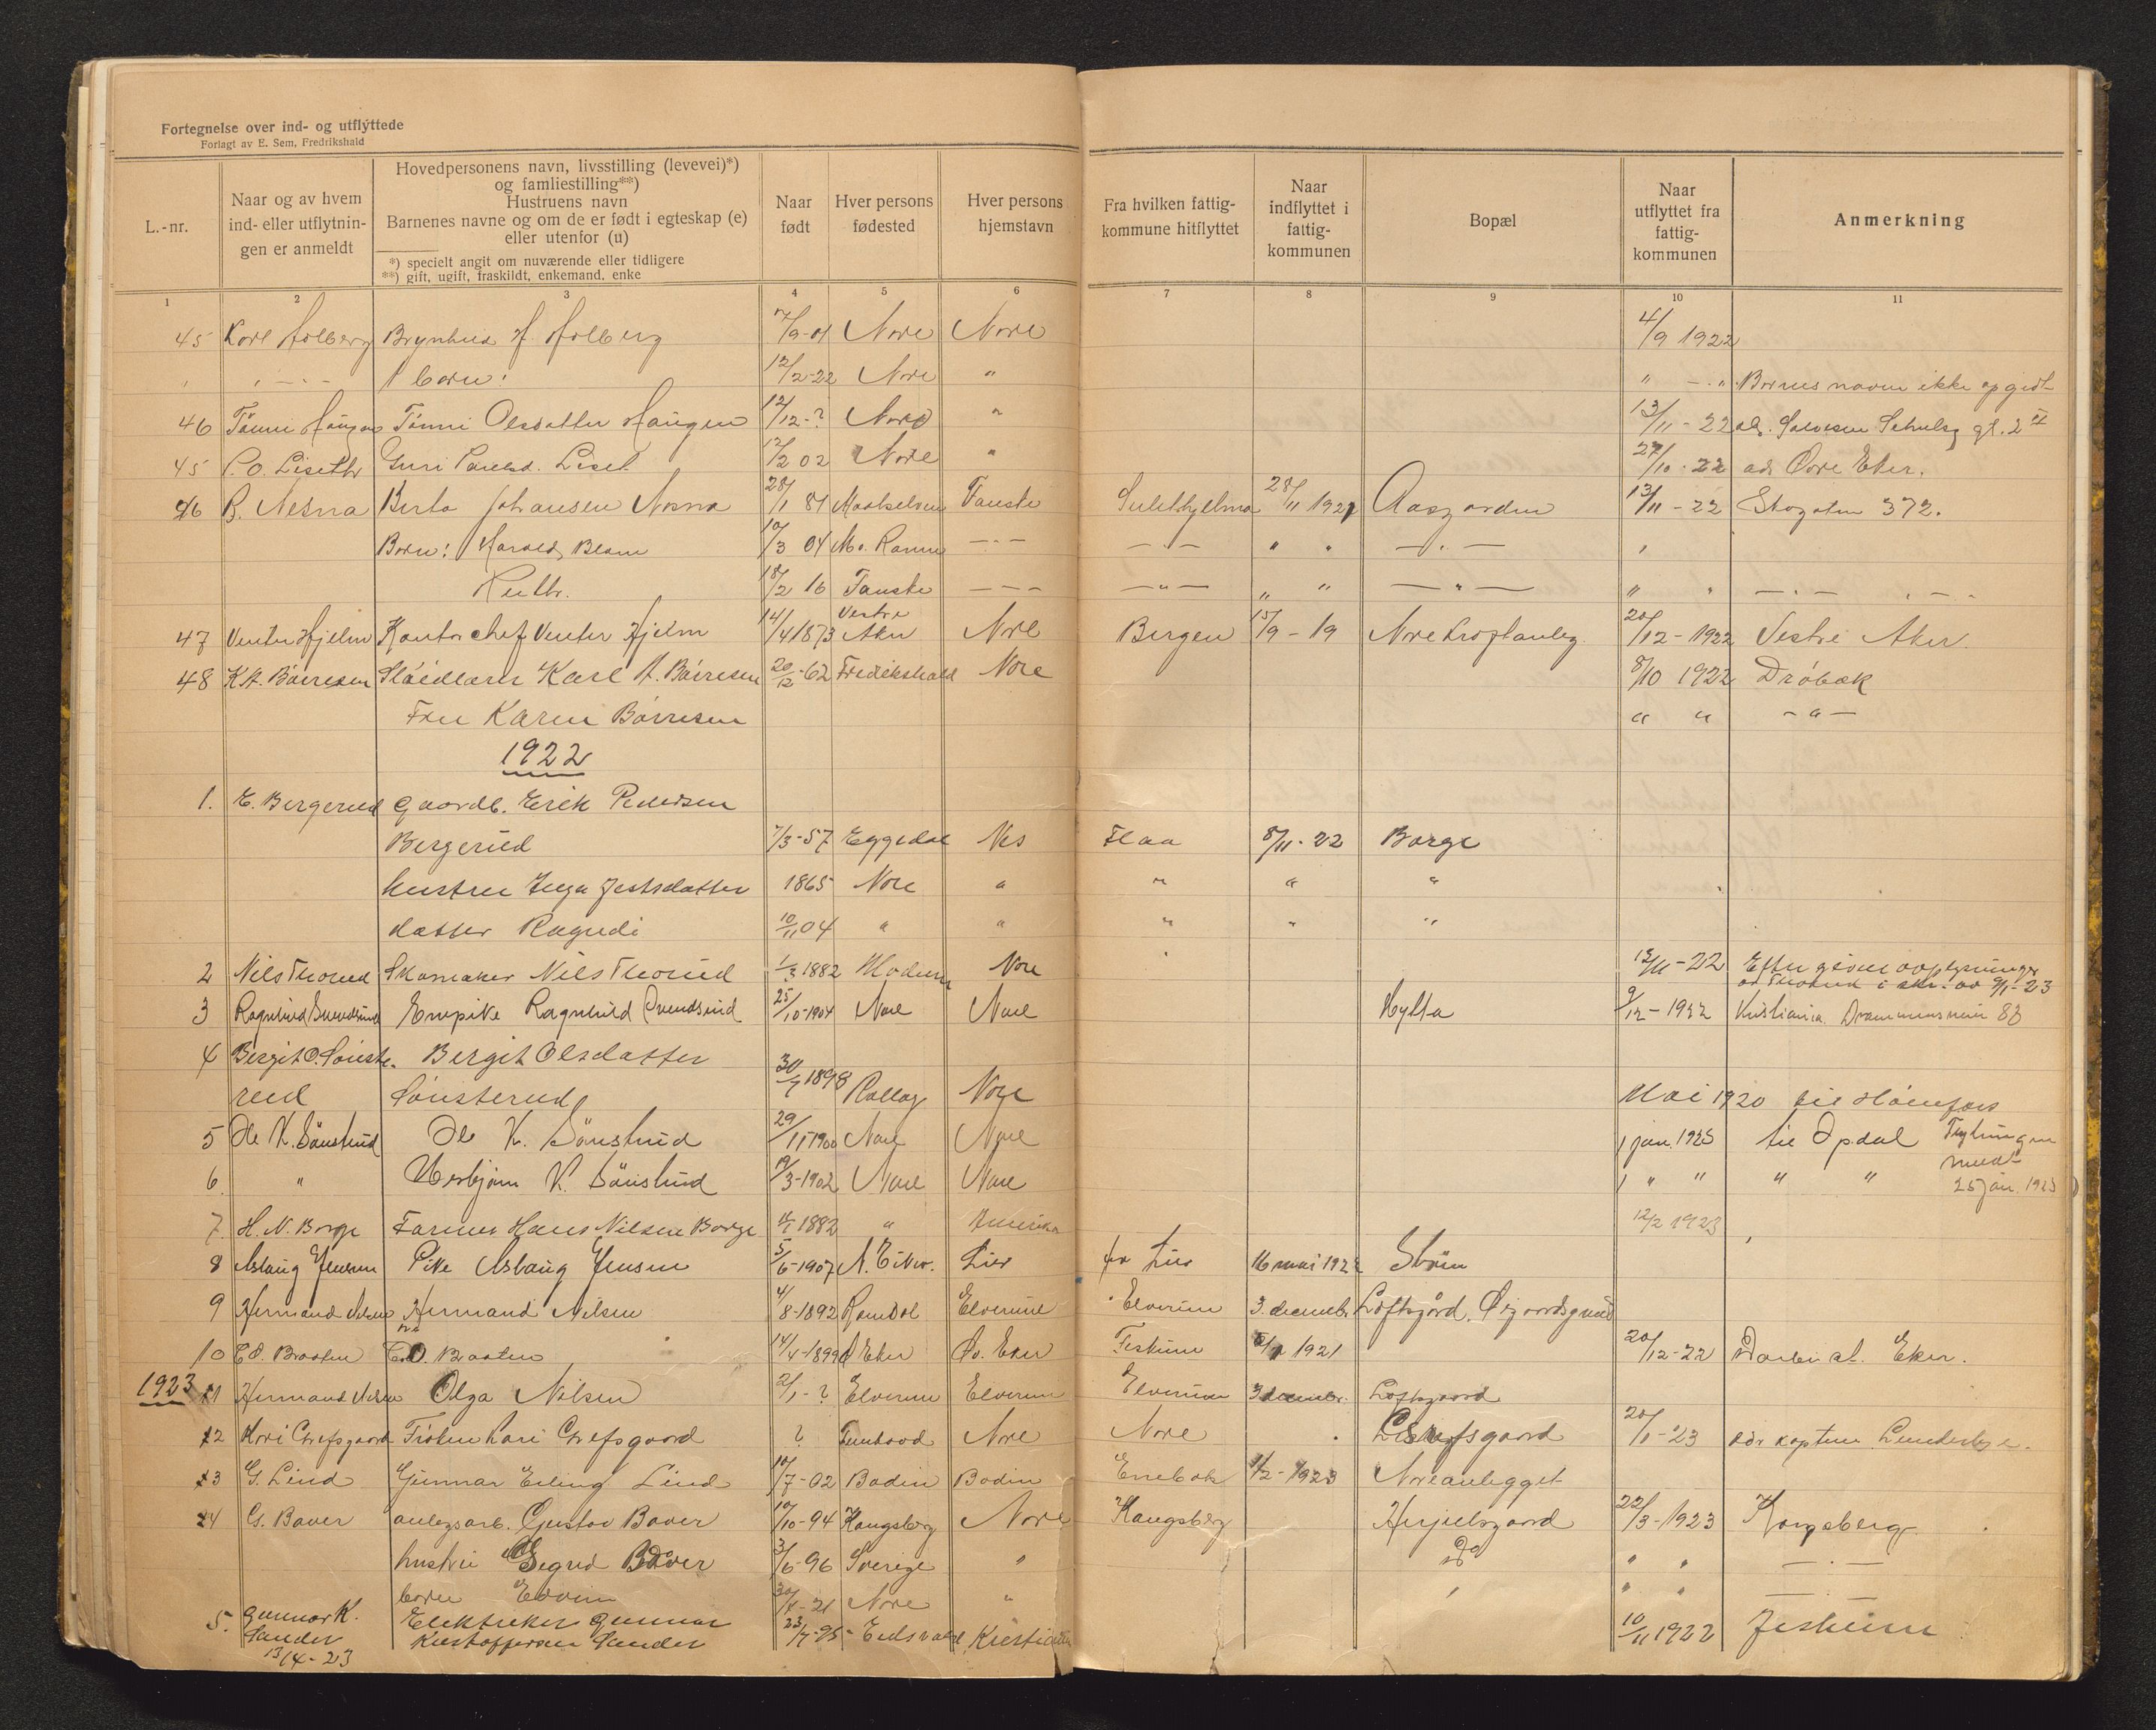 Fortegnelse over ind- og utflyttede
Forlagt av E. Sem, Fredrikshald
L.-nr.
Naar og av hvem ind- eller utflytnin-gen er anmeldt
Hovedpersonens navn, livsstilling (levevei)*)
og famliestilling**)
Hustruens navn
Barnenes navne og om de er født i egteskap (e)
eller utenfor (u)
*) specielt angit om nuværende eller tidligere
**) gift, ugift, fraskildt, enkemand, enke
Naar født
Hver persons fødested
Hver persons hjemstavn
Fra hvilken fattig-kommune hitflyttet
Naar indflyttet i fattig-kommunen
Bopæl
Naar utflyttet fra fattig-kommunen
Anmerkning
1 2 3 4 5 6 7 8 9 10 11
45 Kore Holberg Brynhild H. Holberg 7/9-01 Nore Nore 4/9 1922
" " — " — 1 barn: 12/2-22 Nore " " — " Barnets navn ikke opgidt
46 Tønne Haugen Tønni Olsdatter Haugen 12/12-? Nore " 13/11-22 Schulsg gt. 2 II
45 P. O. Liseth Guri Liset 12/2 02 Nore " 27/10-22 Øvre Eker.
46 B. Nesna Berta Johansen Nesna 28/1 81 Maalselven Fauske Sulithjelma 28/11 1921 Aasgarden 13/11-22 Stogaten 372.
Børn: Harald 10/3 04 Mo. Ranen — " — — " — " " — " — "
Ruth. 18/2 16 Fauske — " — — " — " " — " — " " — " —
47 Venter Hjelm Kontorchef Venter Hjelm 14/4 1873 Vestre Aker Nore Bergen 15/9-19 Nore kraftanleg. 20/12-1922 Vestre Aker.
48 K.A. Børresen Sløidlærer Karl A. Børresen 20/12-62 Fredrikshald Nore 8/10 1922 Drøbak
Fru Karen Børresen " " — " —
1922
1. E. Bergerud Gaardb. Erik Pedersen
Bergerud 7/3-57 Eggedal Nes Flaa 8/11-22 Borge
hustru Inga Jestsdatter 1865 Nore " " " "
datter Ragndi 10/11 04 " " " " "
2 Nils Thorud Skomaker Nils Thorud 1/3 1882 Modum Nore " 12/11-22 Efter givne oplysninger
av Thorud i skr. av 9/1-23
3 Ragnhild Svendsrud Enepike Ragnhild Svendsrud 25/10-1904 Nore Nore Hylta 9/12-1922 Kristiania. Drammensveien 88
4 Bergit O. Sønste- Bergit Olsdatter
rud Sønsterud 30/7 1898 Rollag Nore Mai 1920 til Hønefoss
5 Ole K. Sønstrud Ole K. Sønstrud 29/11 1900 Nore Nore 1 jan. 1923 til Opdal Flytningen
6. " Herbjørn K. Sønstrud 19/3-1902 Nore Nore 1 " " " " meldt 25 jan. 1923
7. H. N. Borge Farmer Hans Nilsen Borge 1882 " Amerika 12/2 1923
8 Aslaug Jensen Pike Aslaug Jensen 5/6-1907 N. Eiker. Lier fra Lier 16 mai 1922 Strøm
9 Hermand Nilsen Hermand Nilsen 4/8-1892 Romdal Elverum Elverum 3. decembr. Loftsgård. Øigaardsgrend
10 C.O. Braaten C.O. Braaten 14/4-1899 Ø Eker Øv. Eker Fiskum 1921 20/12-22 Eker.
1923 11 Hermand Nilsen Olga Nilsen 2/1-? Elverum Elverum Elverum 3 decembr. Loftsgaard
12 Kari Chrefsgaard Frøken Kari Chrefsgaard ? Nore Nore Chrefsgaard 20/1-23 adr kaptein
13 G. Lind Gunnar Erling Lind 10/7-02 Bodin Bodin Enebak 1/2-1923 Noreanlegget
14 G. Baver anlegsarb. Gustav Baver 10/10-94 Kongsberg Nore Kongsberg 22/3-1923 Kongsberg
hustru Segrid Baver 3/6-96 Sverige " Do " " — " —
barn Edvin 21 Nore " " " "
5. Gunnar K. Elektriker Gunnar
Sander Kristoffersen Sander 23/7-95 Eidsvold Kristiania 10/11 1922 Jesheim
13/4-23